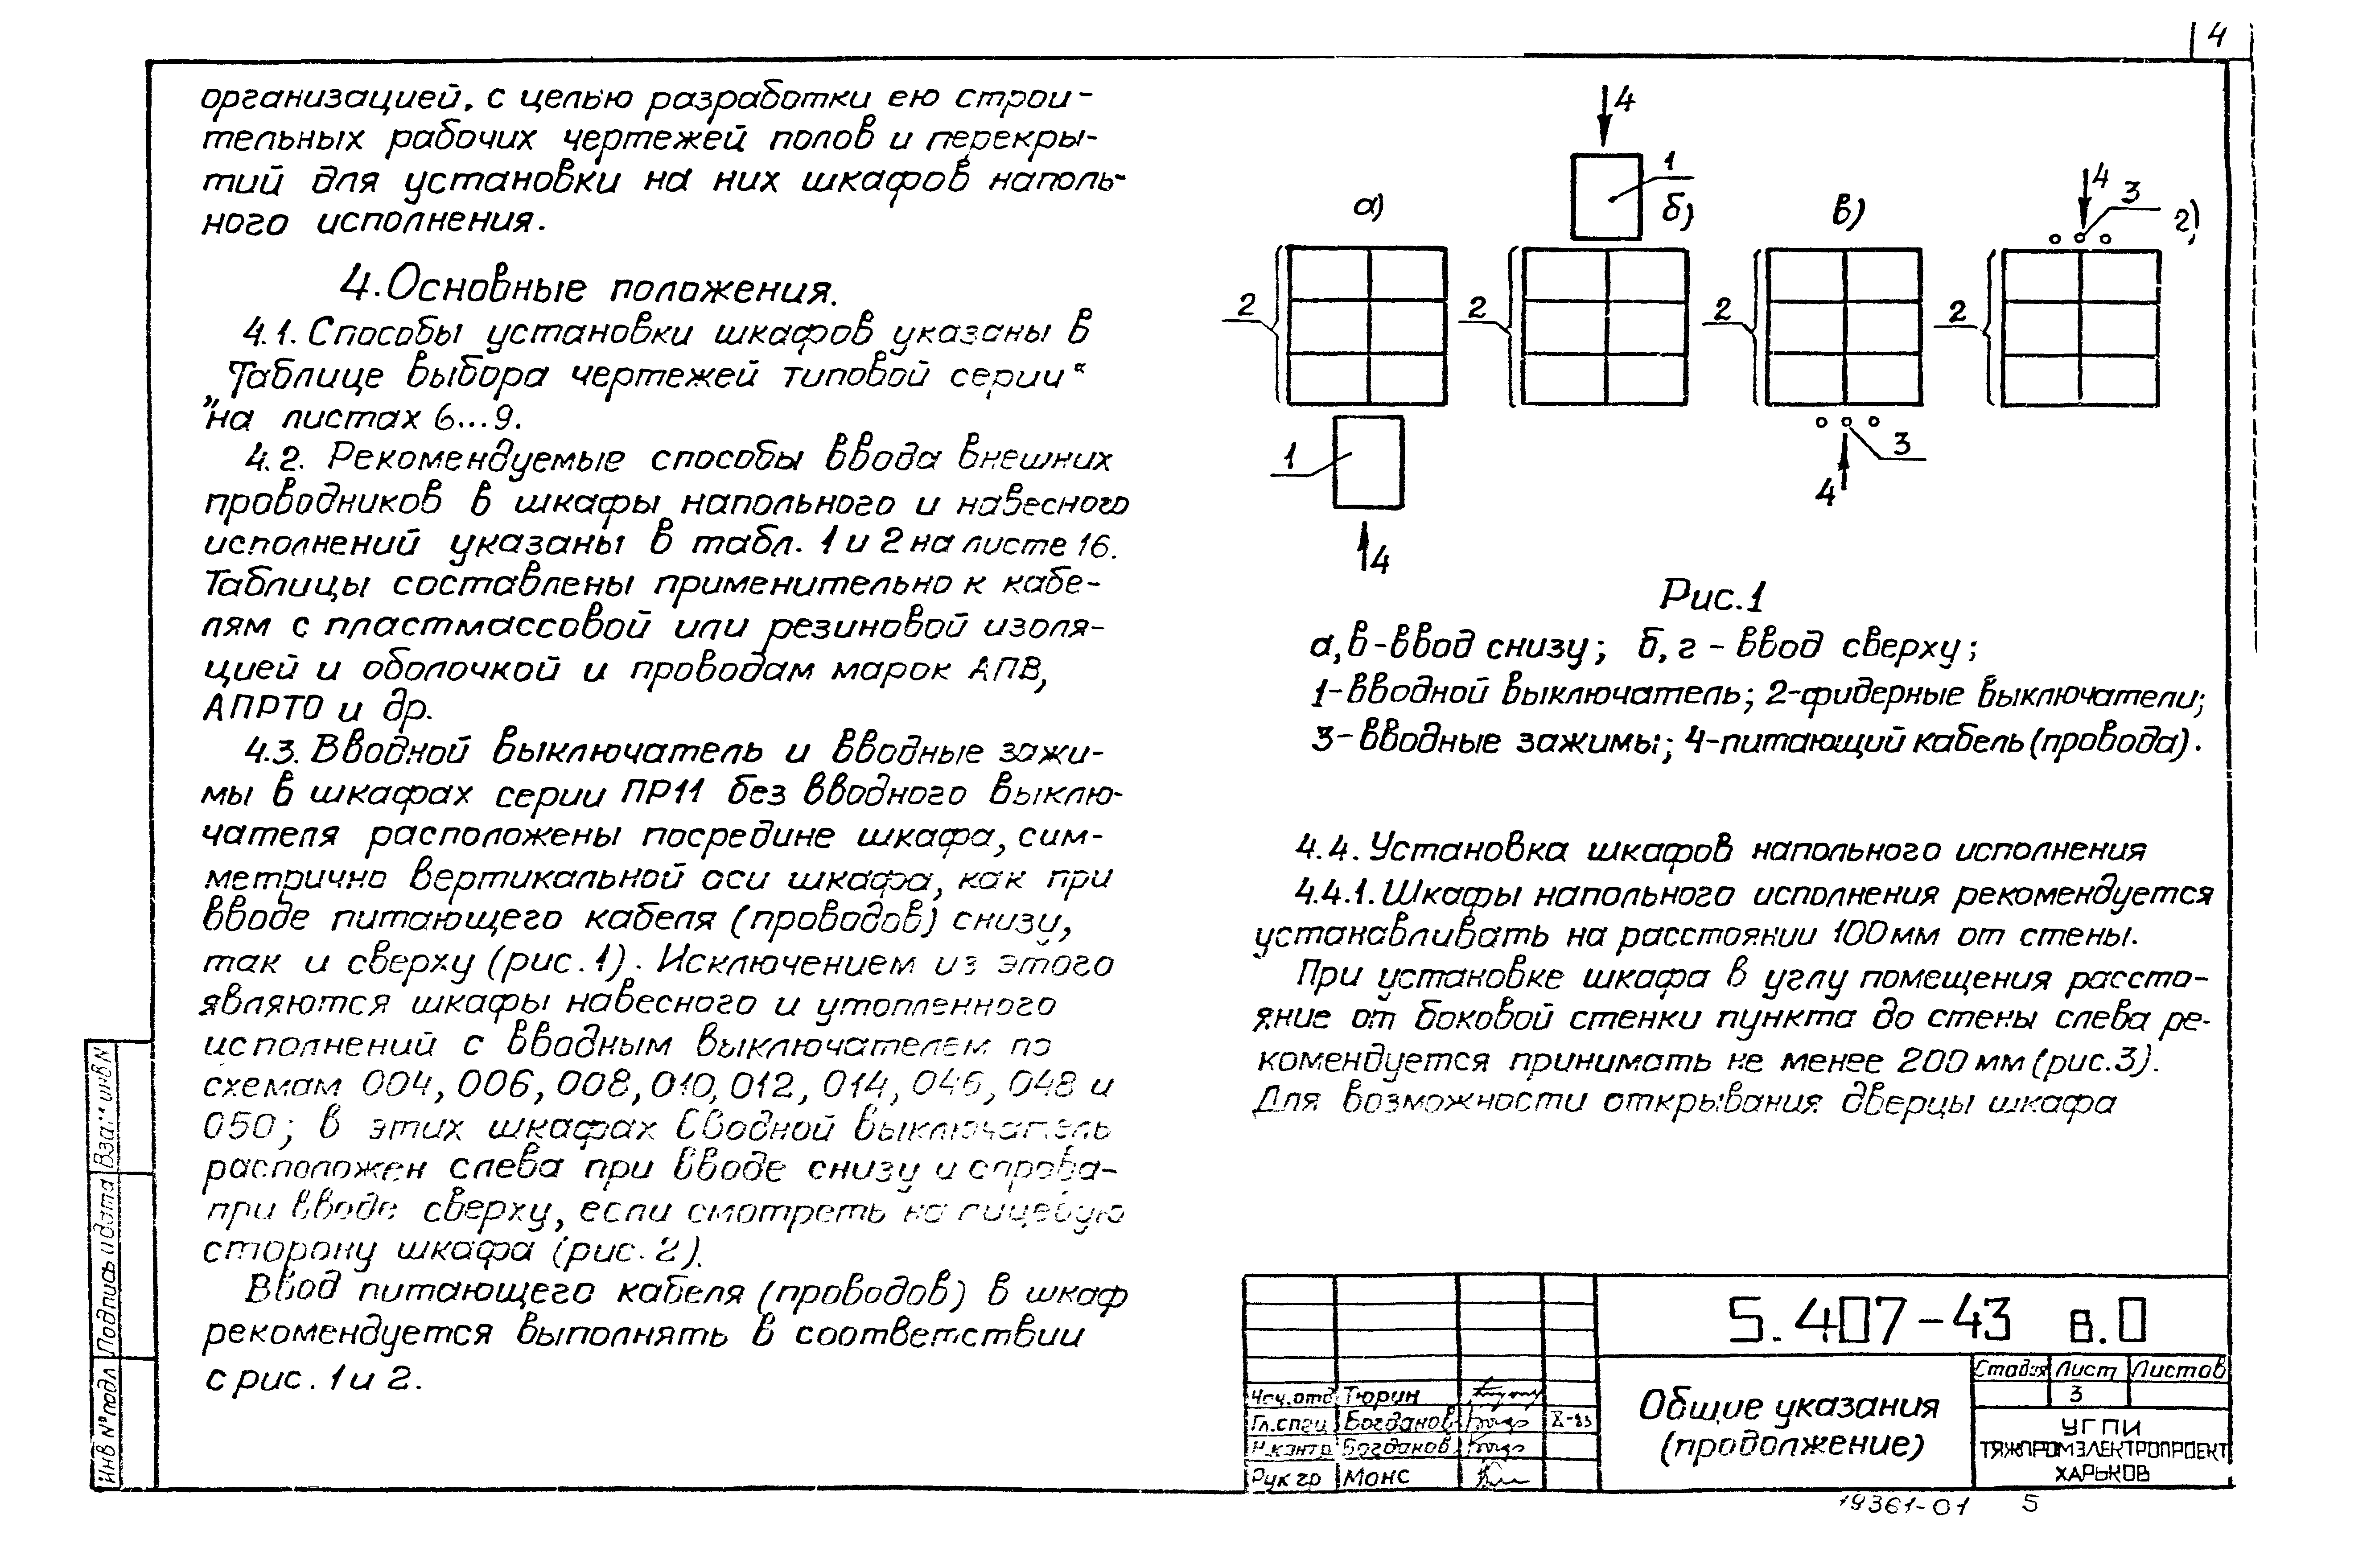 4
организацией, с целью разработки ею строи-
тельных рабочих чертежей полов и перекры-
тий для установки на них шкафов наполь-
ного исполнения.
4. Основные положения.
4.1. Способы установки шкафов указаны в
„Таблице выбора чертежей типовой серии“
на листах 6...9.
4.2. Рекомендуемые способы ввода внешних
проводников в шкафы напольного и навесного
исполнений указаны в табл. 1 и 2 на листе 16.
Таблицы составлены применительно к кабе-
лям с пластмассовой или резиновой изоля-
цией и оболочкой и проводам марок АПВ,
АПРТО и др.
4.3. Вводной выключатель и вводные зажи-
мы в шкафах серии ПР11 без вводного выклю-
чателя расположены посредине шкафа, сим-
метрично вертикальной оси шкафа, как при
вводе питающего кабеля (проводов) снизу,
так и сверху (рис. 1). Исключением из этого
являются шкафы навесного и утопленного
исполнений с вводным выключателем по
схемам 004, 006, 008, 010, 012, 014, 046, 048 и
050; в этих шкафах вводной выключатель
расположен слева при вводе снизу и справа-
при вводе сверху, если смотреть на лицевую
сторону шкафа (рис. 2).
Ввод питающего кабеля (проводов) в шкаф
рекомендуется выполнять в соответствии
с рис. 1 и 2.
4
1
4
3
а)
б)
в)
г)
2
2
2
2
1
3
4
4
Рис. 1
а, в - ввод снизу; б, г - ввод сверху;
1-вводной выключатель; 2-фидерные выключатели;
3-вводные зажимы; 4-питающий кабель (провода).
4.4. Установка шкафов напольного исполнения
4.4.1. Шкафы напольного исполнения рекомендуется
устанавливать на расстоянии 100 мм от стены.
При установке шкафа в углу помещения рассто-
яние от боковой стенки пункта до стены слева ре-
комендуется принимать не менее 200 мм (рис. 3).
Для возможности открывания дверцы шкафа
5.407-43 в.0
Общие указания
(продолжение)
Стадия Лист Листов
3
УГПИ
ТЯЖПРОМЭЛЕКТРОПРОЕКТ
ХАРЬКОВ
Нач.отд Тюрин
Гл.спец Богданов X-83
Н.контр Богданов
Рук гр Монс
Взам инв N
Подпись и дата
Инв N° подл
19361-01 5